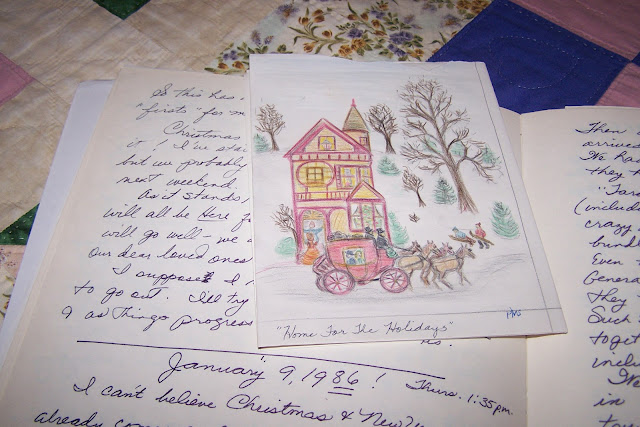 So this has
"firsts" for m
Christmas
it! I've star
but we probably
next weekend.
As it stands,
will all be here f
will go well - we a
Our dear loved ones
I suppose I
to go out. I'll try
I as things progress
ns.
January 9, 1986! Thurs. 1:35 pm.
I can't believe Christmas & New Y
already com
"Home For The Holidays"
PMS
Then
arrive
We ha
they h
"Tar
(includ
crazy
bund
Even t
Genera
they
Such
toget
inclu
We
in
tow